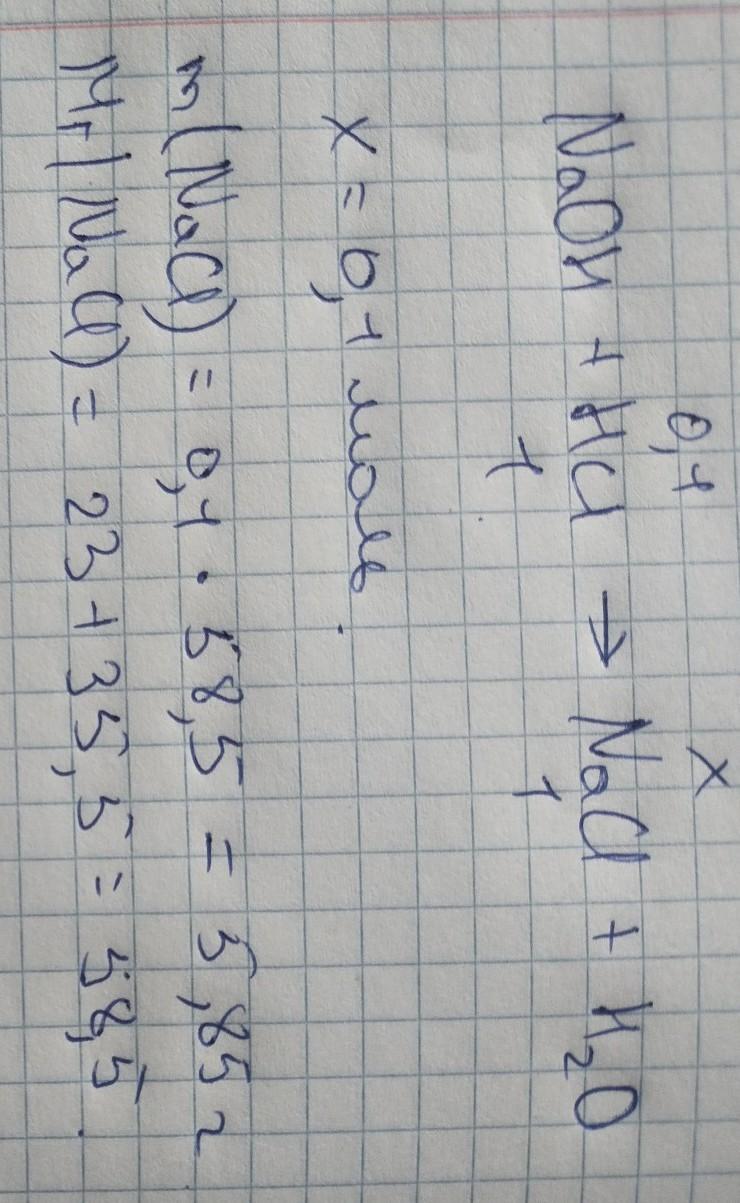 0,1 x
NaOH + HCl → NaCl + H₂O
1 1
x = 0,1 моль.
m(NaCl) = 0,1 · 58,5 = 5,85 г
Mr(NaCl) = 23+35,5 = 58,5.